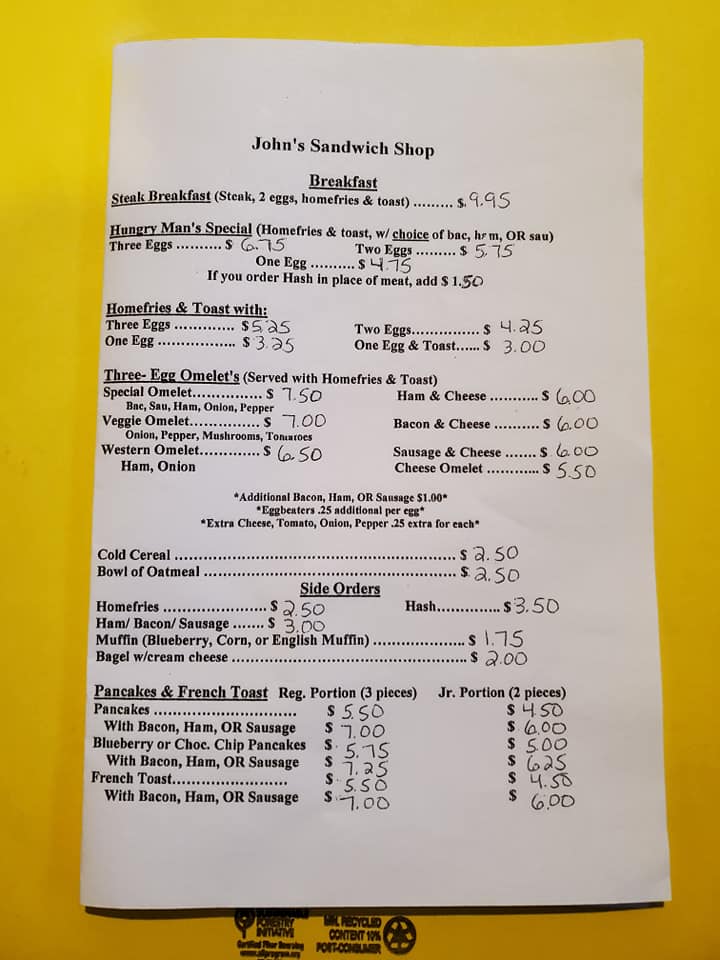 John's Sandwich Shop
Breakfast
Steak Breakfast (Steak, 2 eggs, homefries & toast) ......... $ 9.95
Hungry Man's Special (Homefries & toast, w/ choice of bac, ham, OR sau)
Three Eggs .......... $ 6.75 Two Eggs ......... $ 5.75
One Egg .......... $ 4.75
If you order Hash in place of meat, add $ 1.50
Homefries & Toast with:
Three Eggs ............. $ 5.25 Two Eggs............... $ 4.25
One Egg ................. $ 3.25 One Egg & Toast...... $ 3.00
Three- Egg Omelet's (Served with Homefries & Toast)
Special Omelet............... $ 7.50 Ham & Cheese ........... $ 6.00
Bac, Sau, Ham, Onion, Pepper
Veggie Omelet............... $ 7.00 Bacon & Cheese .......... $ 6.00
Onion, Pepper, Mushrooms, Tomatoes
Western Omelet............. $ 6.50 Sausage & Cheese ....... $ 6.00
Ham, Onion Cheese Omelet ............ $ 5.50
*Additional Bacon, Ham, OR Sausage $1.00*
*Eggbeaters .25 additional per egg*
*Extra Cheese, Tomato, Onion, Pepper .25 extra for each*
Cold Cereal ........................................................ $ 2.50
Bowl of Oatmeal .................................................. $ 2.50
Side Orders
Homefries ...................... $ 2.50 Hash............. $ 3.50
Ham/ Bacon/ Sausage ....... $ 3.00
Muffin (Blueberry, Corn, or English Muffin) .................... $ 1.75
Bagel w/cream cheese .................................................. $ 2.00
Pancakes & French Toast Reg. Portion (3 pieces) Jr. Portion (2 pieces)
Pancakes ............................. $ 5.50 $ 4.50
With Bacon, Ham, OR Sausage $ 7.00 $ 6.00
Blueberry or Choc. Chip Pancakes $ 5.75 $ 5.00
With Bacon, Ham, OR Sausage $ 7.25 $ 6.25
French Toast....................... $ 5.50 $ 4.50
With Bacon, Ham, OR Sausage $ 7.00 $ 6.00
FORESTRY
INITIATIVE
Certified Fiber Sourcing
RECYCLED
CONTENT 10%
POST-CONSUMER